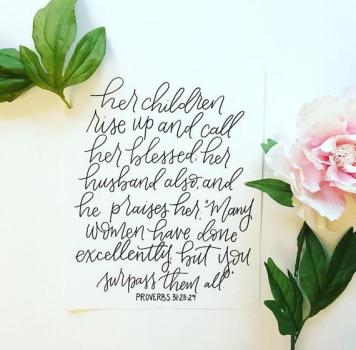 her children
rise up and call
her blessed; her
husband also, and
he praises her, "Many
women have done
excellently, but you
surpass them all."
PROVERBS 31:28-29